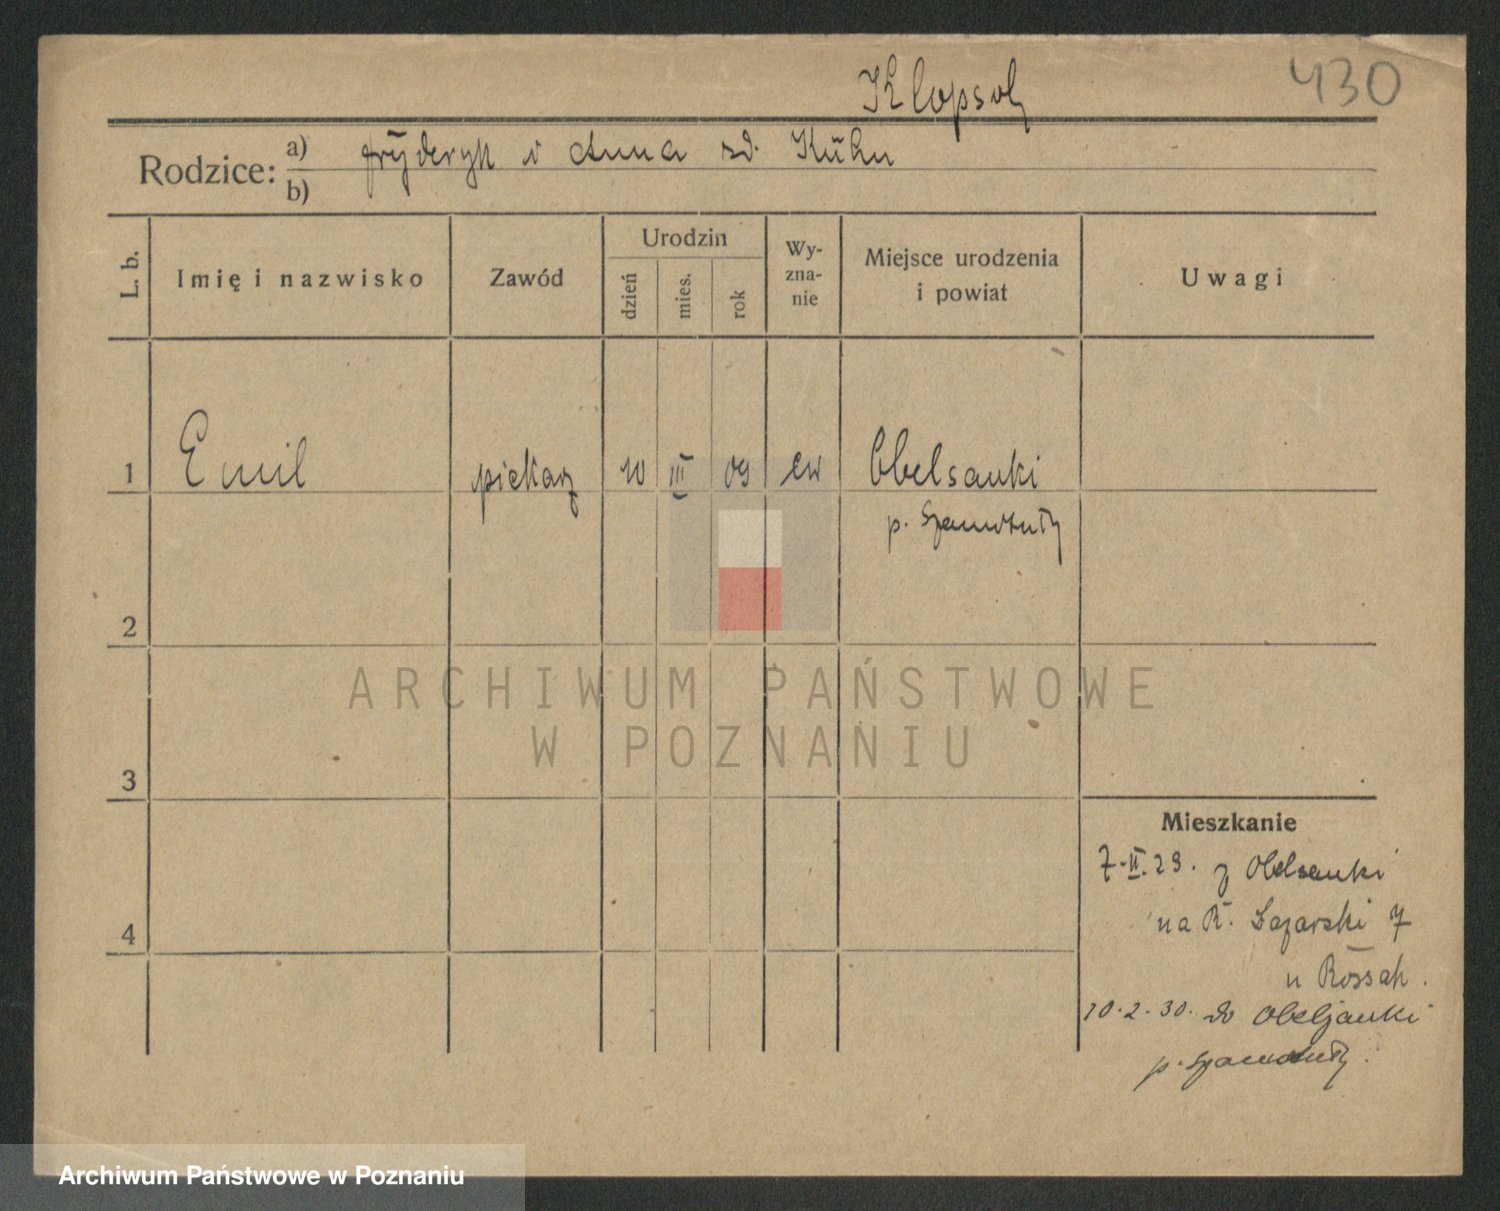 430
Klopsch
Rodzice: a) Fryderyk i Anna zd. Kühn
b)
L. b. Imię i nazwisko Zawód Urodzin dzień mies. rok Wy-zna-nie Miejsce urodzenia i powiat Uwagi
1 Emil piekarz 10 III 09 ew Obelzanki
p. Szamotuły
2
ARCHIWUM PAŃSTWOWE
W POZNANIU
3
Mieszkanie
7.II.29. z Obelzanki
na R. Łazarski 7
4
u Rossah.
10.2.30. do Obelzanki
p. Szamotuły.
Archiwum Państwowe w Poznaniu